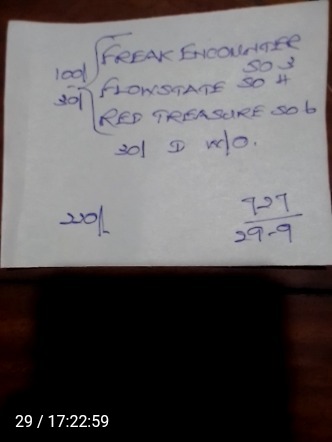 FREAK ENCOUNTER
100/ SO 3
30/ FLOWSTATE SO 4
RED TREASURE SO 6
30/ D W/O.
220/- 727
29-9
29 / 17:22:59